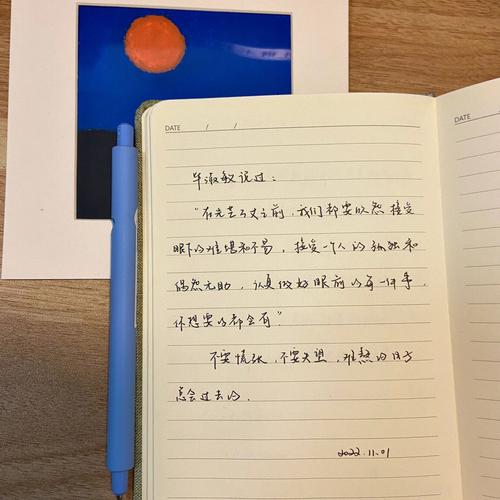 DATE / /
DATE
毕淑敏说过:
"在光芒万丈之前,我们都要欣然接受
眼下的难堪和不易,接受一个人的孤独和
偶然无助,认真做好眼前的每一件事,
你想要的都会有"
不要慌张,不要失望,难熬的日子
总会过去的.
2022.11.01